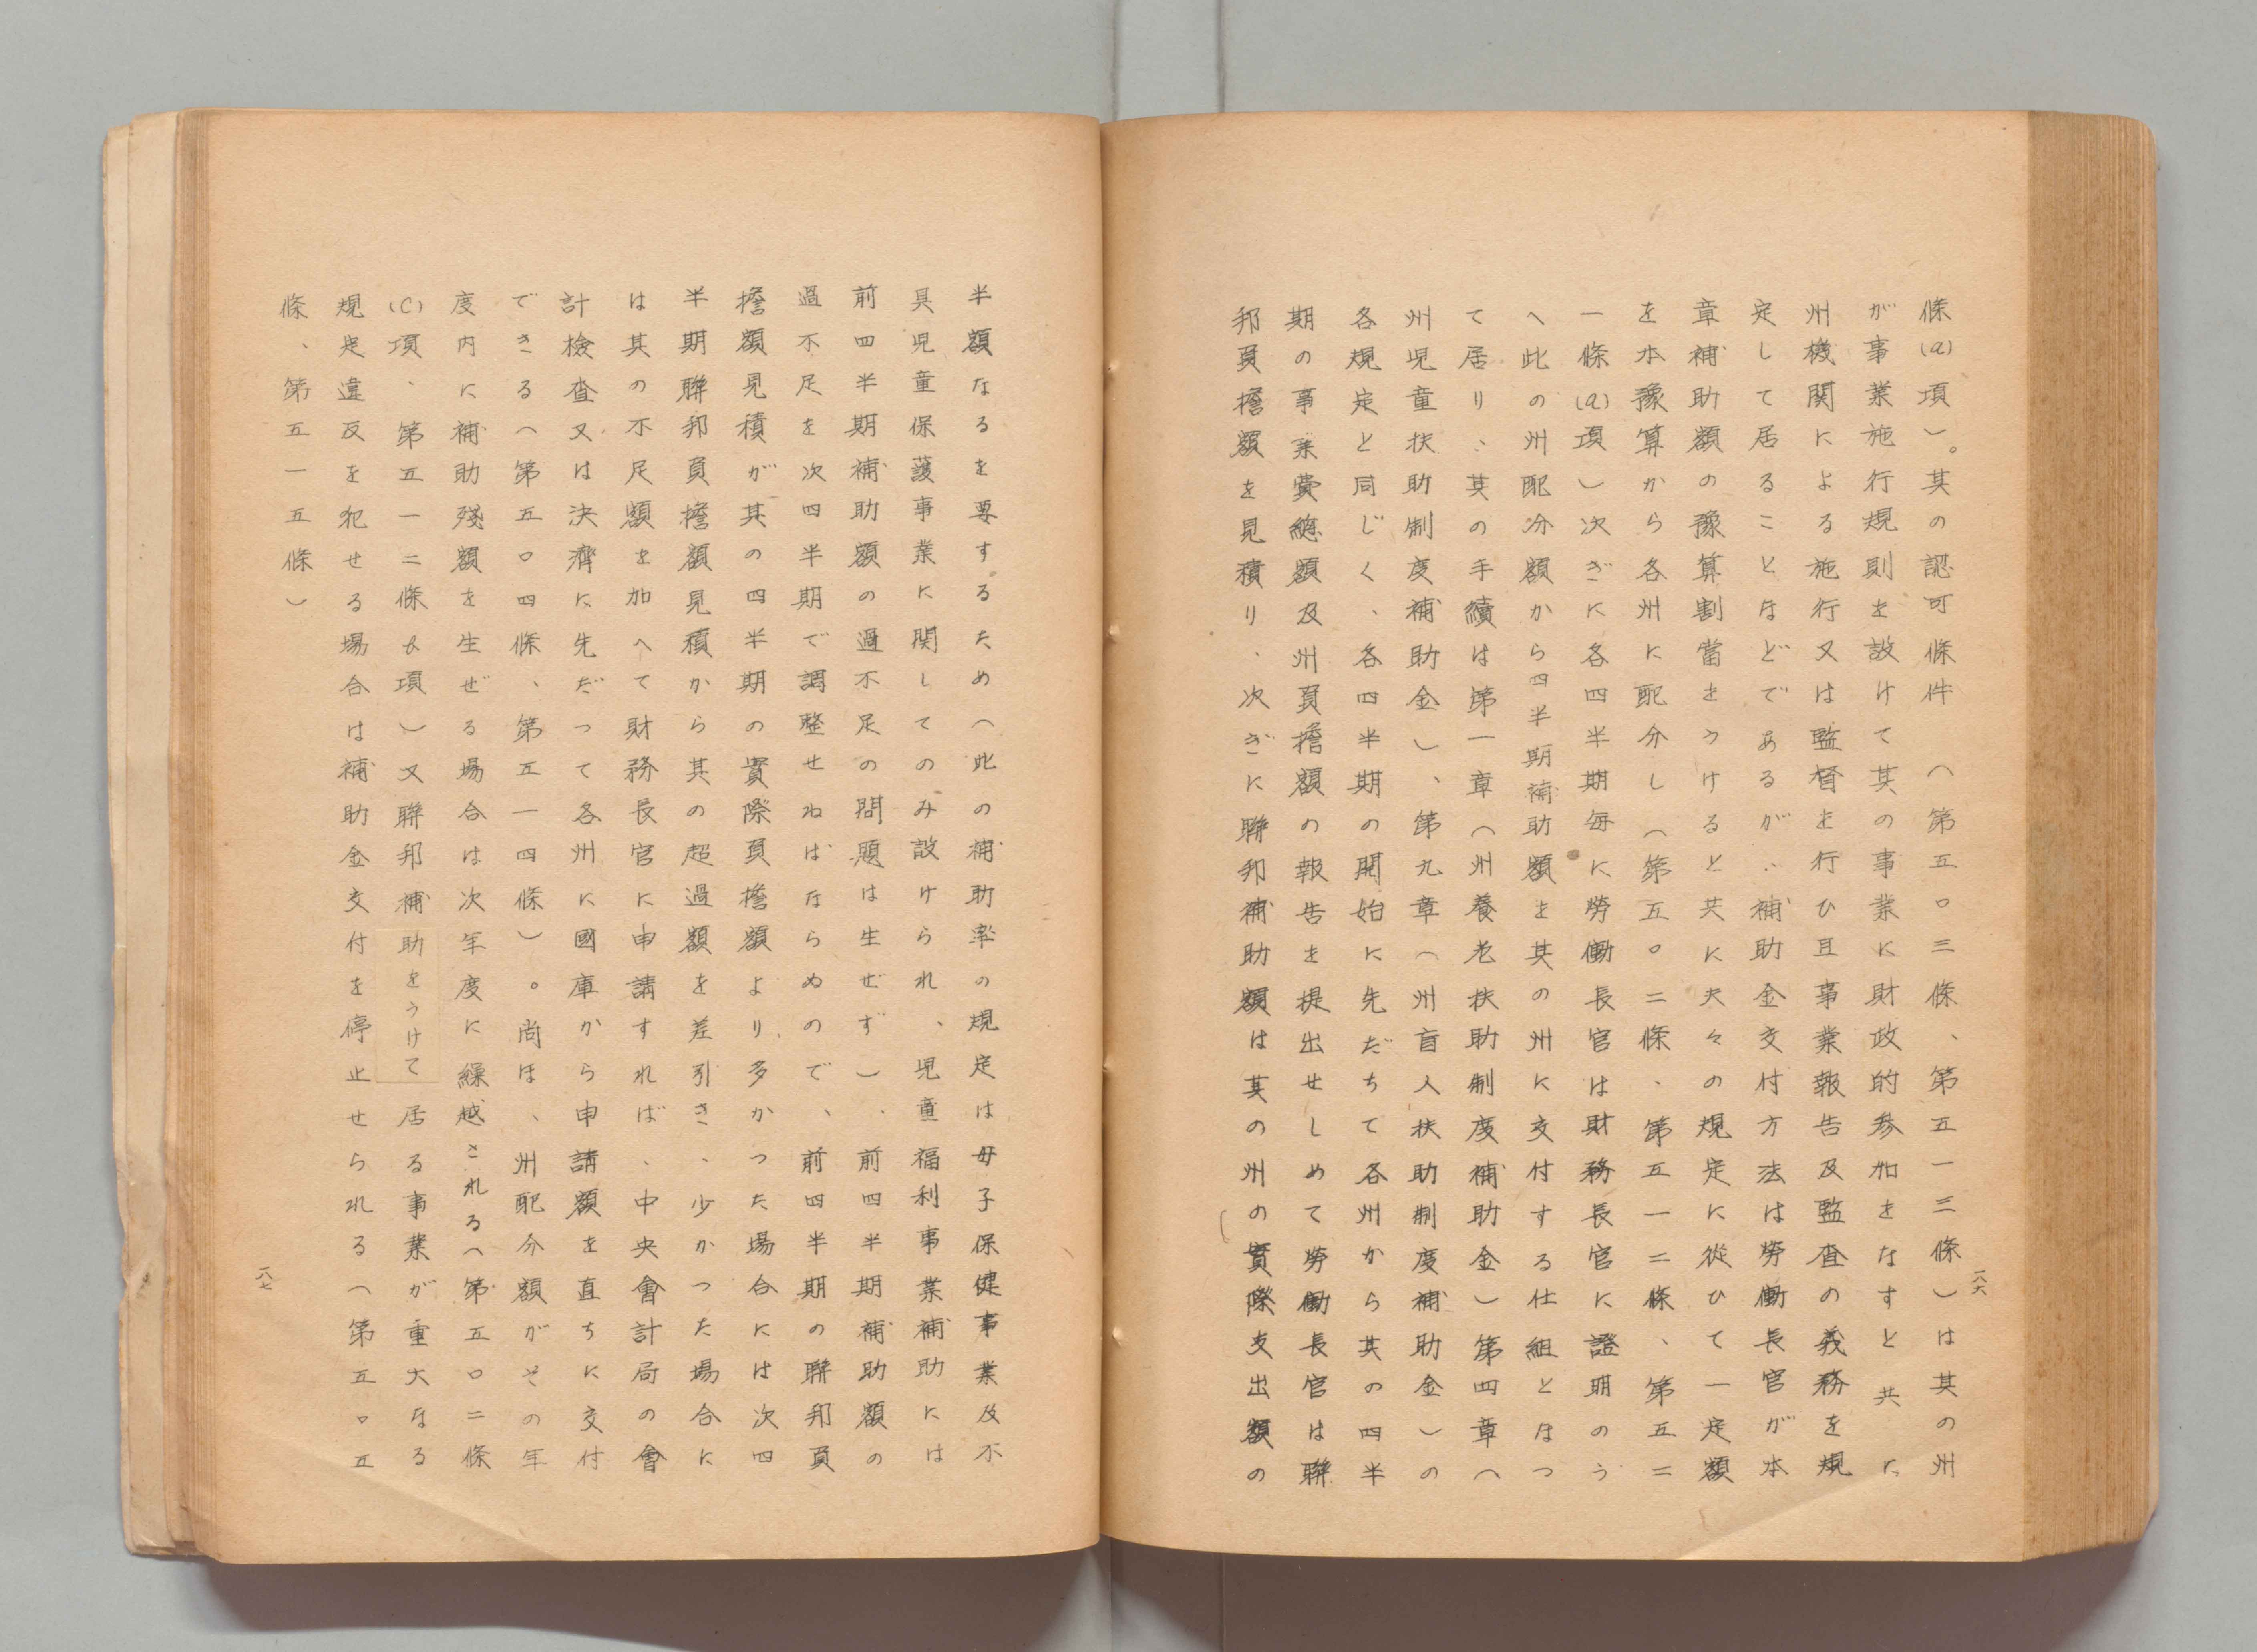 條(a)項)。其の認可條件(第五〇三條、第五一三條)は其の州
が事業施行規則を設けて其の事業に財政的参加をなすと共に
州機関による施行又は監督を行ひ且事業報告及監査の義務を規
定して居ることなどであるが、補助金交付方法は勞働長官が本
章補助額の豫算割當をうけると共に夫々の規定に從ひて一定額
を本豫算から各州に配分し(第五〇二條、第五一二條、第五二
一條(a)項)次ぎに各四半期毎に勞働長官は財務長官に證明のう
へ此の州配分額から四半期補助額を其の州に交付する仕組となつ
て居り、其の手續は第一章(州養老扶助制度補助金)第四章(
州児童扶助制度補助金)、第九章(州盲人扶助制度補助金)の
各規定と同じく、各四半期の開始に先だちて各州から其の四半
期の事業費總額及州負擔額の報告を提出せしめて勞働長官は聯
邦負擔額を見積り、次ぎに聯邦補助額は其の州の實際支出額の
一八六
半額なるを要するため(此の補助率の規定は母子保健事業及不
具児童保護事業に関してのみ設けられ、児童福利事業補助には
前四半期補助額の過不足の問題は生ぜず)、前四半期補助額の
過不足を次四半期で調整せねばならぬので、前四半期の聯邦負
擔額見積が其の四半期の實際負擔額より多かつた場合には次四
半期聯邦負擔額見積から其の超過額を差引き、少かつた場合に
は其の不足額を加へて財務長官に申請すれば、中央會計局の會
計檢査又は決濟に先だつて各州に國庫から申請額を直ちに交付
できる(第五〇四條、第五一四條)。尚ほ、州配分額がその年
度内に補助殘額を生ぜる場合は次年度に繰越される(第五〇二條
(c)項、第五一二條&項)又聯邦補助をうけて居る事業が重大なる
規定違反を犯せる場合は補助金交付を停止せられる(第五〇五
條、第五一五條)
一八七